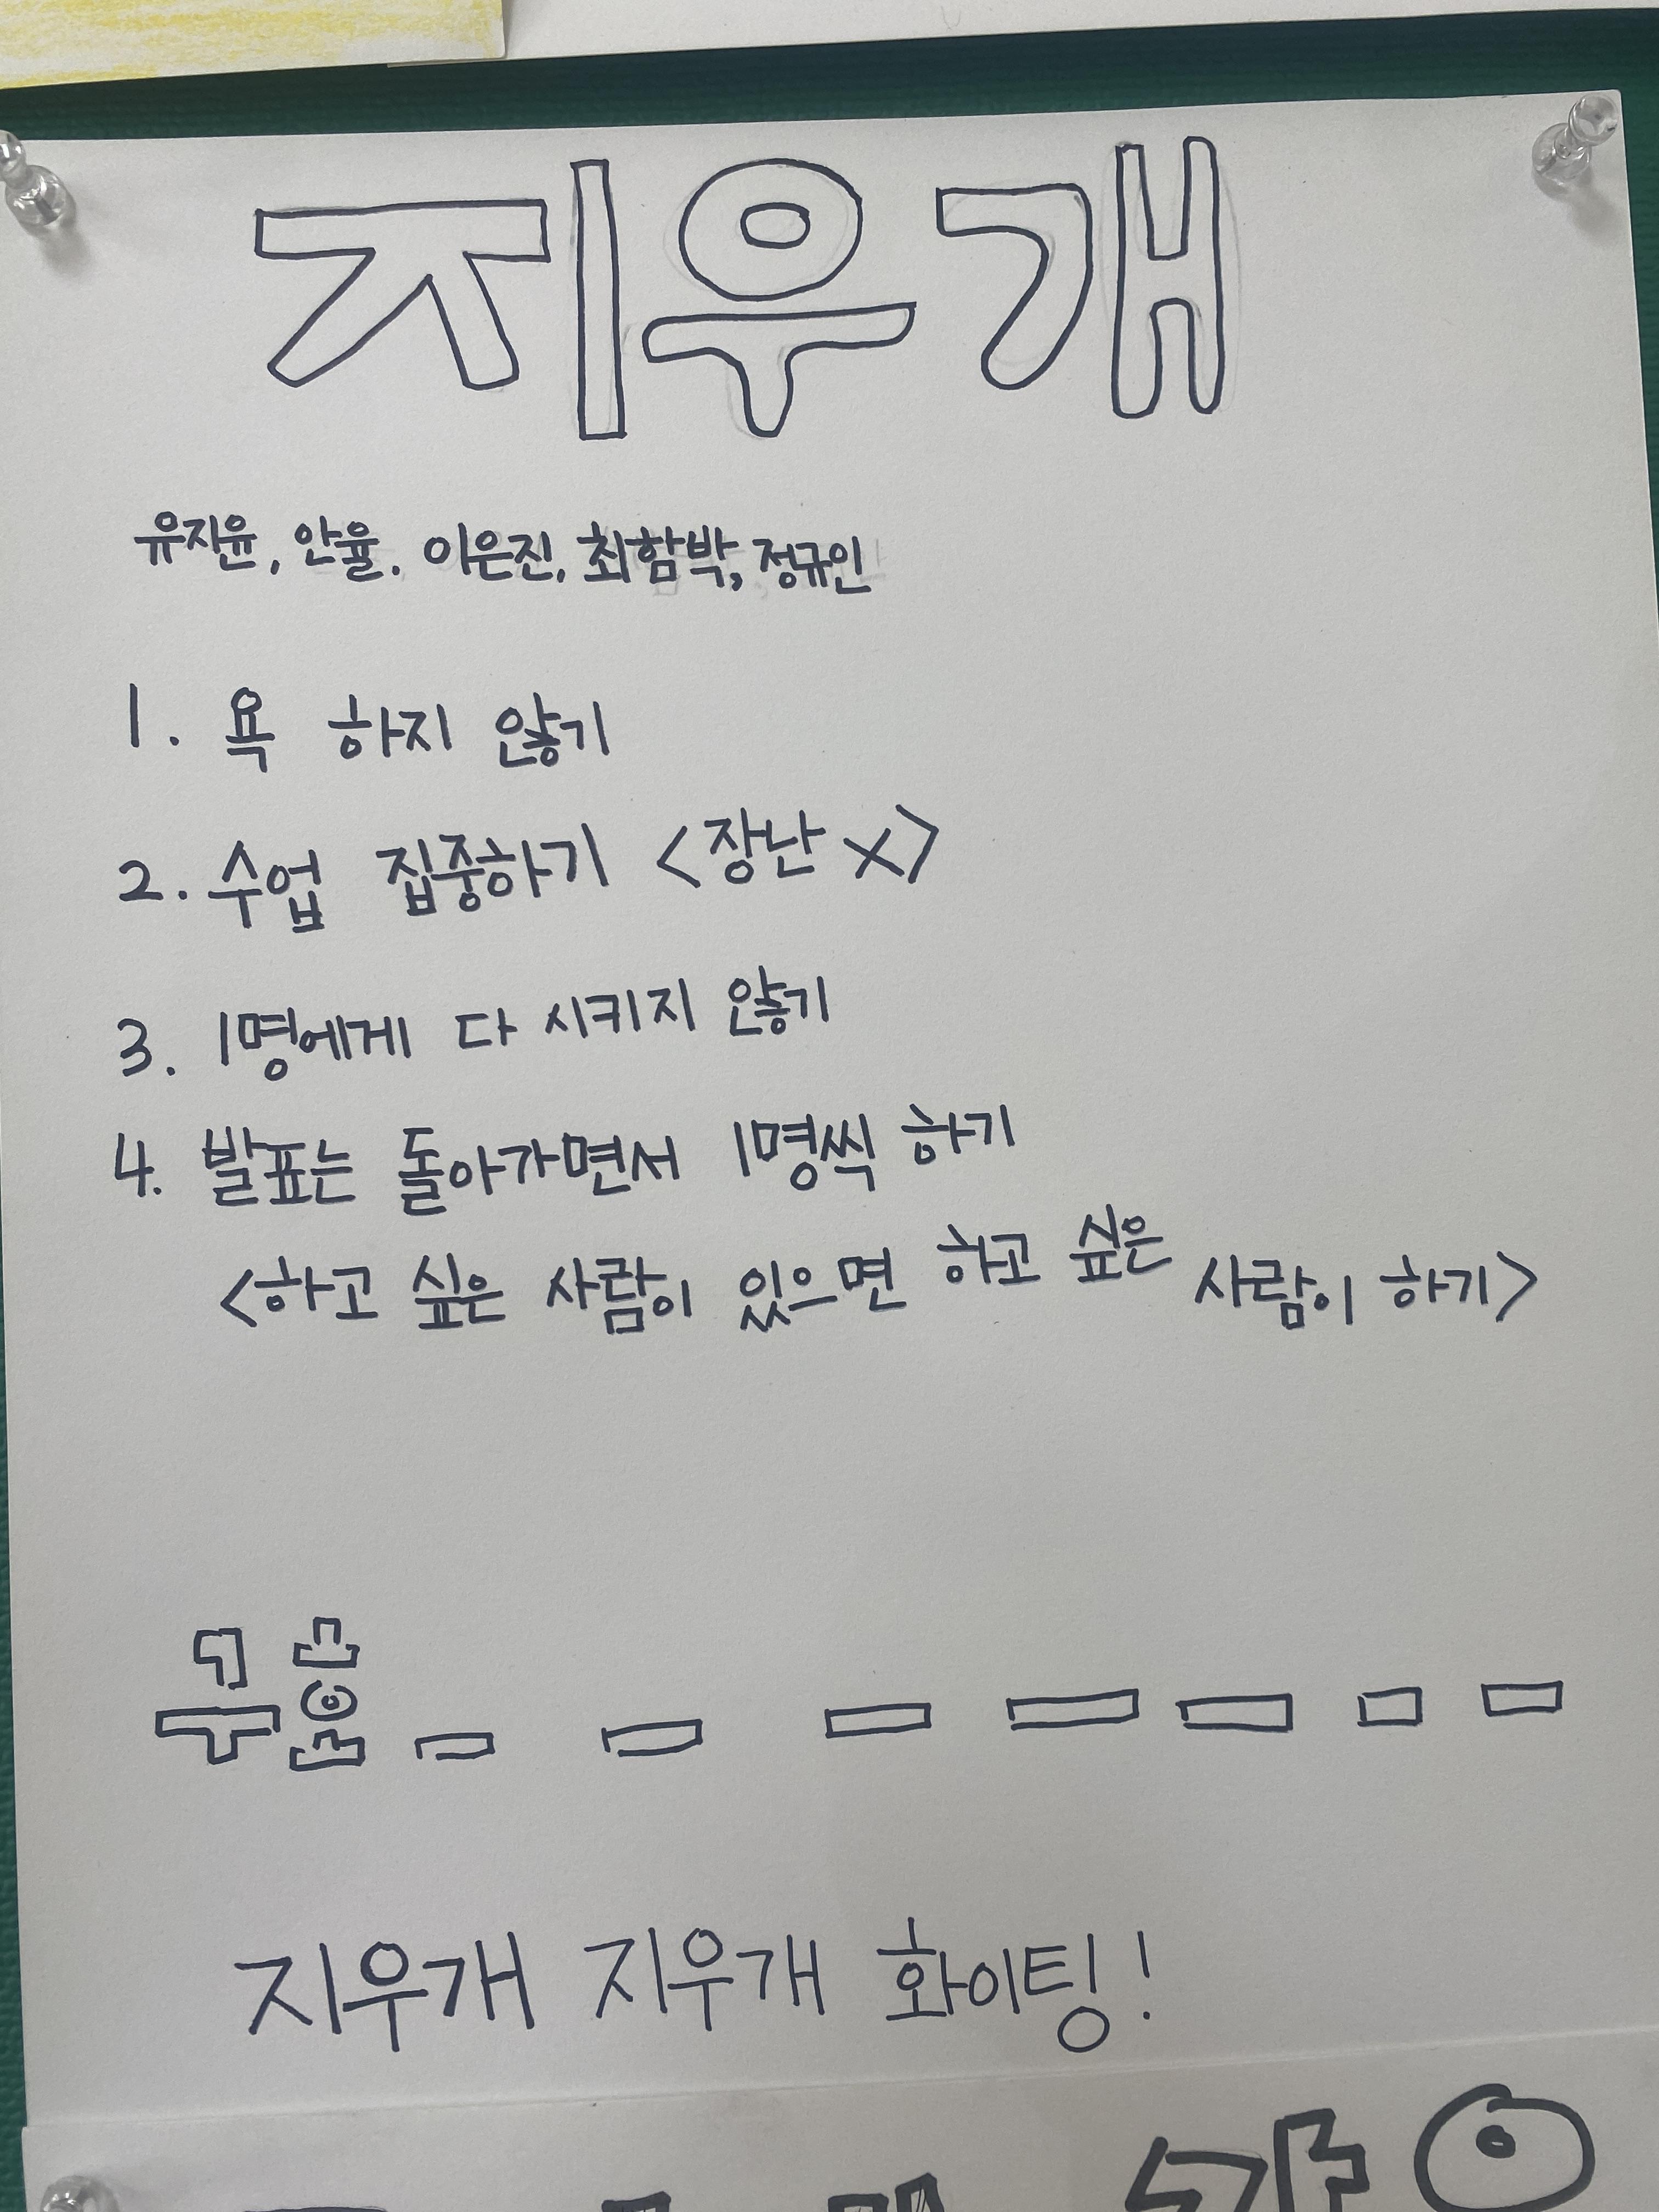 지우개
유지윤, 안율. 이은진, 최함박, 정규인
1. 욕 하지 않기
2. 수업 집중하기 <장난 X>
3. 1명에게 다 시키지 않기
4. 발표는 돌아가면서 1명씩 하기
<하고 싶은 사람이 있으면 하고 싶은 사람이 하기>
구호 - - - - - - -
지우개 지우개 화이팅!